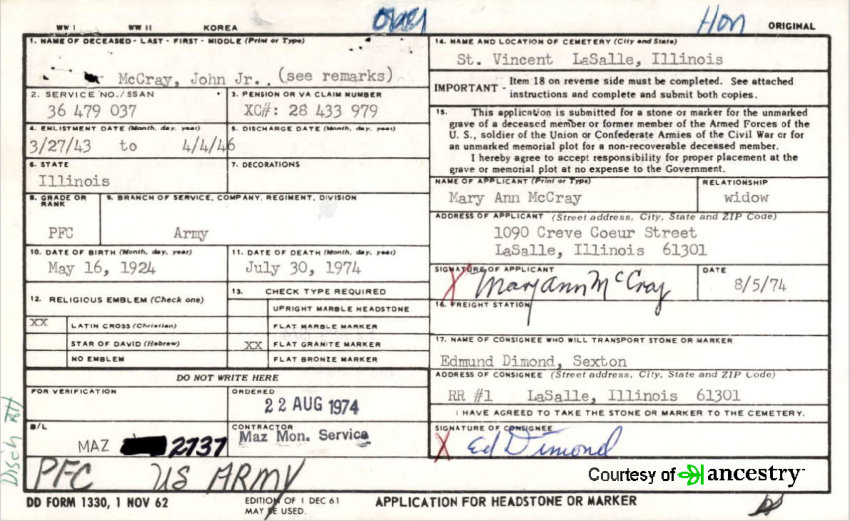 WW I WW II KOREA
Hon
ORIGINAL
1. NAME OF DECEASED - LAST - FIRST - MIDDLE (Print or Type)
McCray, John Jr., (see remarks)
2. SERVICE NO./SSAN
36 479 037
3. PENSION OR VA CLAIM NUMBER
XC#: 28 433 979
4. ENLISTMENT DATE (Month, day, year)
5. DISCHARGE DATE (Month, day, year)
3/27/43 to 4/4/46
6. STATE
Illinois
7. DECORATIONS
8. GRADE OR RANK
PFC
9. BRANCH OF SERVICE, COMPANY, REGIMENT, DIVISION
Army
10. DATE OF BIRTH (Month, day, year)
May 16, 1924
11. DATE OF DEATH (Month, day, year)
July 30, 1974
12. RELIGIOUS EMBLEM (Check one)
XX LATIN CROSS (Christian)
STAR OF DAVID (Hebrew)
NO EMBLEM
13. CHECK TYPE REQUIRED
UPRIGHT MARBLE HEADSTONE
FLAT MARBLE MARKER
XX FLAT GRANITE MARKER
FLAT BRONZE MARKER
DO NOT WRITE HERE
FOR VERIFICATION
ORDERED
22 AUG 1974
B/L
MAZ 2737
CONTRACTOR
Maz Mon. Service
PFC US ARMY
14. NAME AND LOCATION OF CEMETERY (City and State)
St. Vincent LaSalle, Illinois
IMPORTANT - Item 18 on reverse side must be completed. See attached
instructions and complete and submit both copies.
15. This application is submitted for a stone or marker for the unmarked
grave of a deceased member or former member of the Armed Forces of the
U. S., soldier of the Union or Confederate Armies of the Civil War or for
an unmarked memorial plot for a non-recoverable deceased member.
I hereby agree to accept responsibility for proper placement at the
grave or memorial plot at no expense to the Government.
NAME OF APPLICANT (Print or Type)
Mary Ann McCray
RELATIONSHIP
widow
ADDRESS OF APPLICANT (Street address, City, State and ZIP Code)
1090 Creve Coeur Street
LaSalle, Illinois 61301
SIGNATURE OF APPLICANT
X Mary Ann McCray
DATE
8/5/74
16. FREIGHT STATION
17. NAME OF CONSIGNEE WHO WILL TRANSPORT STONE OR MARKER
Edmund Dimond, Sexton
ADDRESS OF CONSIGNEE (Street address, City, State and ZIP Code)
RR #1 LaSalle, Illinois 61301
I HAVE AGREED TO TAKE THE STONE OR MARKER TO THE CEMETERY.
SIGNATURE OF CONSIGNEE
X Ed Dimond
Courtesy of ancestry
DD FORM 1330, 1 NOV 62
EDITION OF 1 DEC 61
MAY BE USED.
APPLICATION FOR HEADSTONE OR MARKER